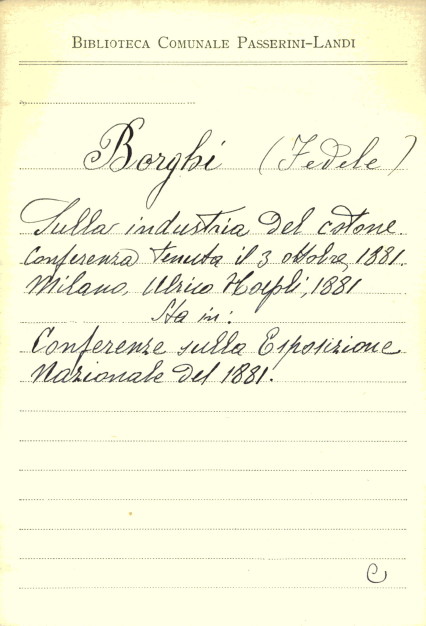 BIBLIOTECA COMUNALE PASSERINI-LANDI
Borghi (Fedele)
Sulla industria del cotone.
Conferenza tenuta il 3 ottobre, 1881.
Milano, Ulrico Hoepli, 1881
Sta in:
Conferenze sulla Esposizione
Nazionale del 1881.
C